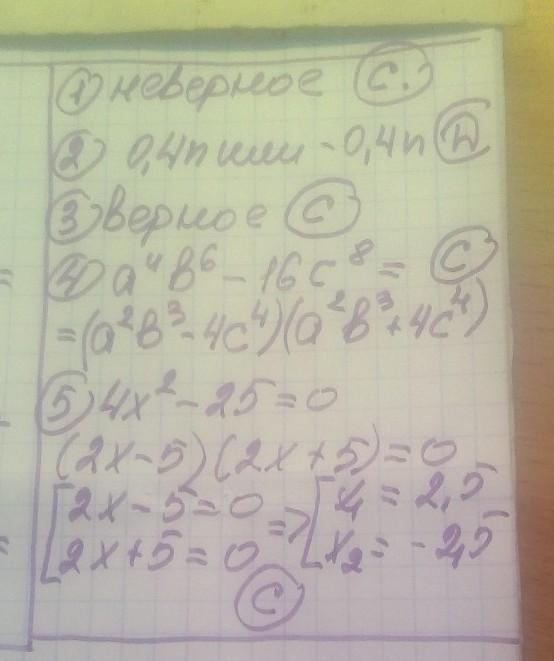 ① неверное Ⓒ.
② 0,4n или -0,4n Ⓓ
③ верное Ⓒ
④ a⁴b⁶ - 16c⁸ = Ⓒ
= (a²b³ - 4c⁴)(a²b³ + 4c⁴)
⑤ 4x² - 25 = 0
(2x - 5)(2x + 5) = 0
[2x - 5 = 0 => [x₁ = 2,5
[2x + 5 = 0 [x₂ = -2,5
Ⓒ